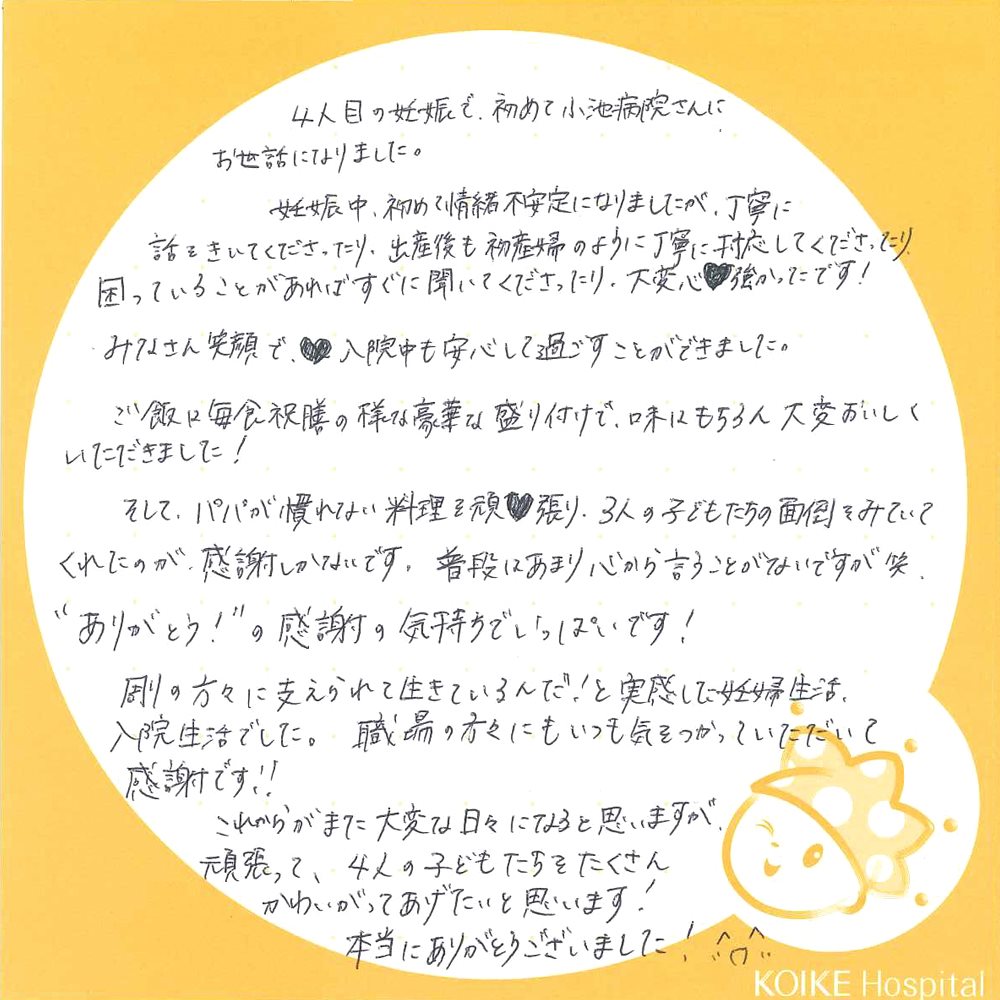 4人目の妊娠で、初めて小池病院さんに
お世話になりました。
妊娠中、初めて情緒不安定になりましたが、丁寧に
話をきいてくださったり、出産後も初産婦のように丁寧に対応してくださったり
困っていることがあればすぐに聞いてくださったり、大変心♥強かったです!
みなさん笑顔で、♥入院中も安心して過ごすことができました。
ご飯は毎食祝膳の様な豪華な盛り付けで、味はもちろん大変おいしく
いただきました!
そして、パパが慣れない料理を頑♥張り、3人の子どもたちの面倒をみていて
くれたのが、感謝しかないです。普段はあまり心から言うことがないですが笑、
"ありがとう!"の感謝の気持ちでいっぱいです!
周りの方々に支えられて生きているんだ!と実感した妊婦生活、
入院生活でした。職場の方々にもいつも気をつかっていただいて
感謝です!!
これからがまた大変な日々になると思いますが、
頑張って、4人の子どもたちをたくさん
かわいがってあげたいと思います!
本当にありがとうございました!
KOIKE Hospital